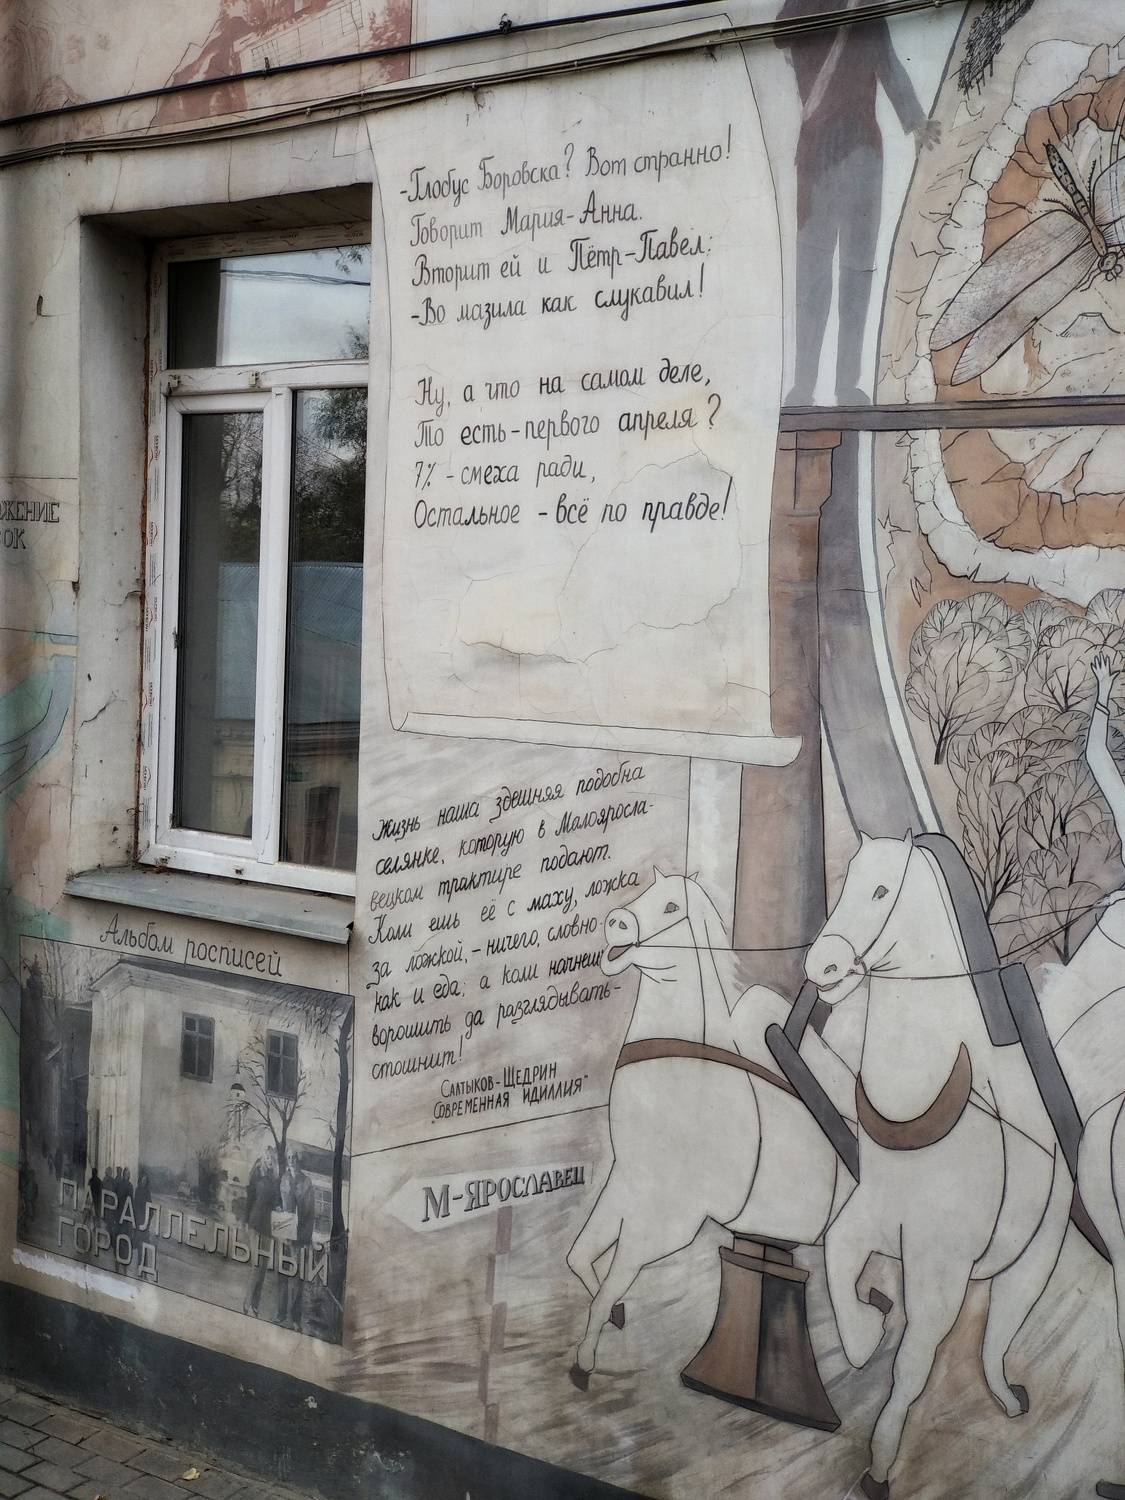 -Глобус Боровска? Вот странно!
Говорит Мария-Анна.
Вторит ей и Пётр-Павел:
-Во мазила как слукавил!
Ну, а что на самом деле,
То есть-первого апреля?
7% -смеха ради,
Остальное -всё по правде!
Жизнь наша здешняя подобна
селянке, которую в Малояросла-
вецком трактире подают.
Коли ешь её с маху, ложка
за ложкой,- ничего, словно-
как и еда; а коли начнешь
ворошить да разглядывать-
стошнит!
Салтыков-Щедрин
"Современная идиллия"
М-ЯРОСЛАВЕЦ
Альбом росписей
ПАРАЛЛЕЛЬНЫЙ
ГОРОД